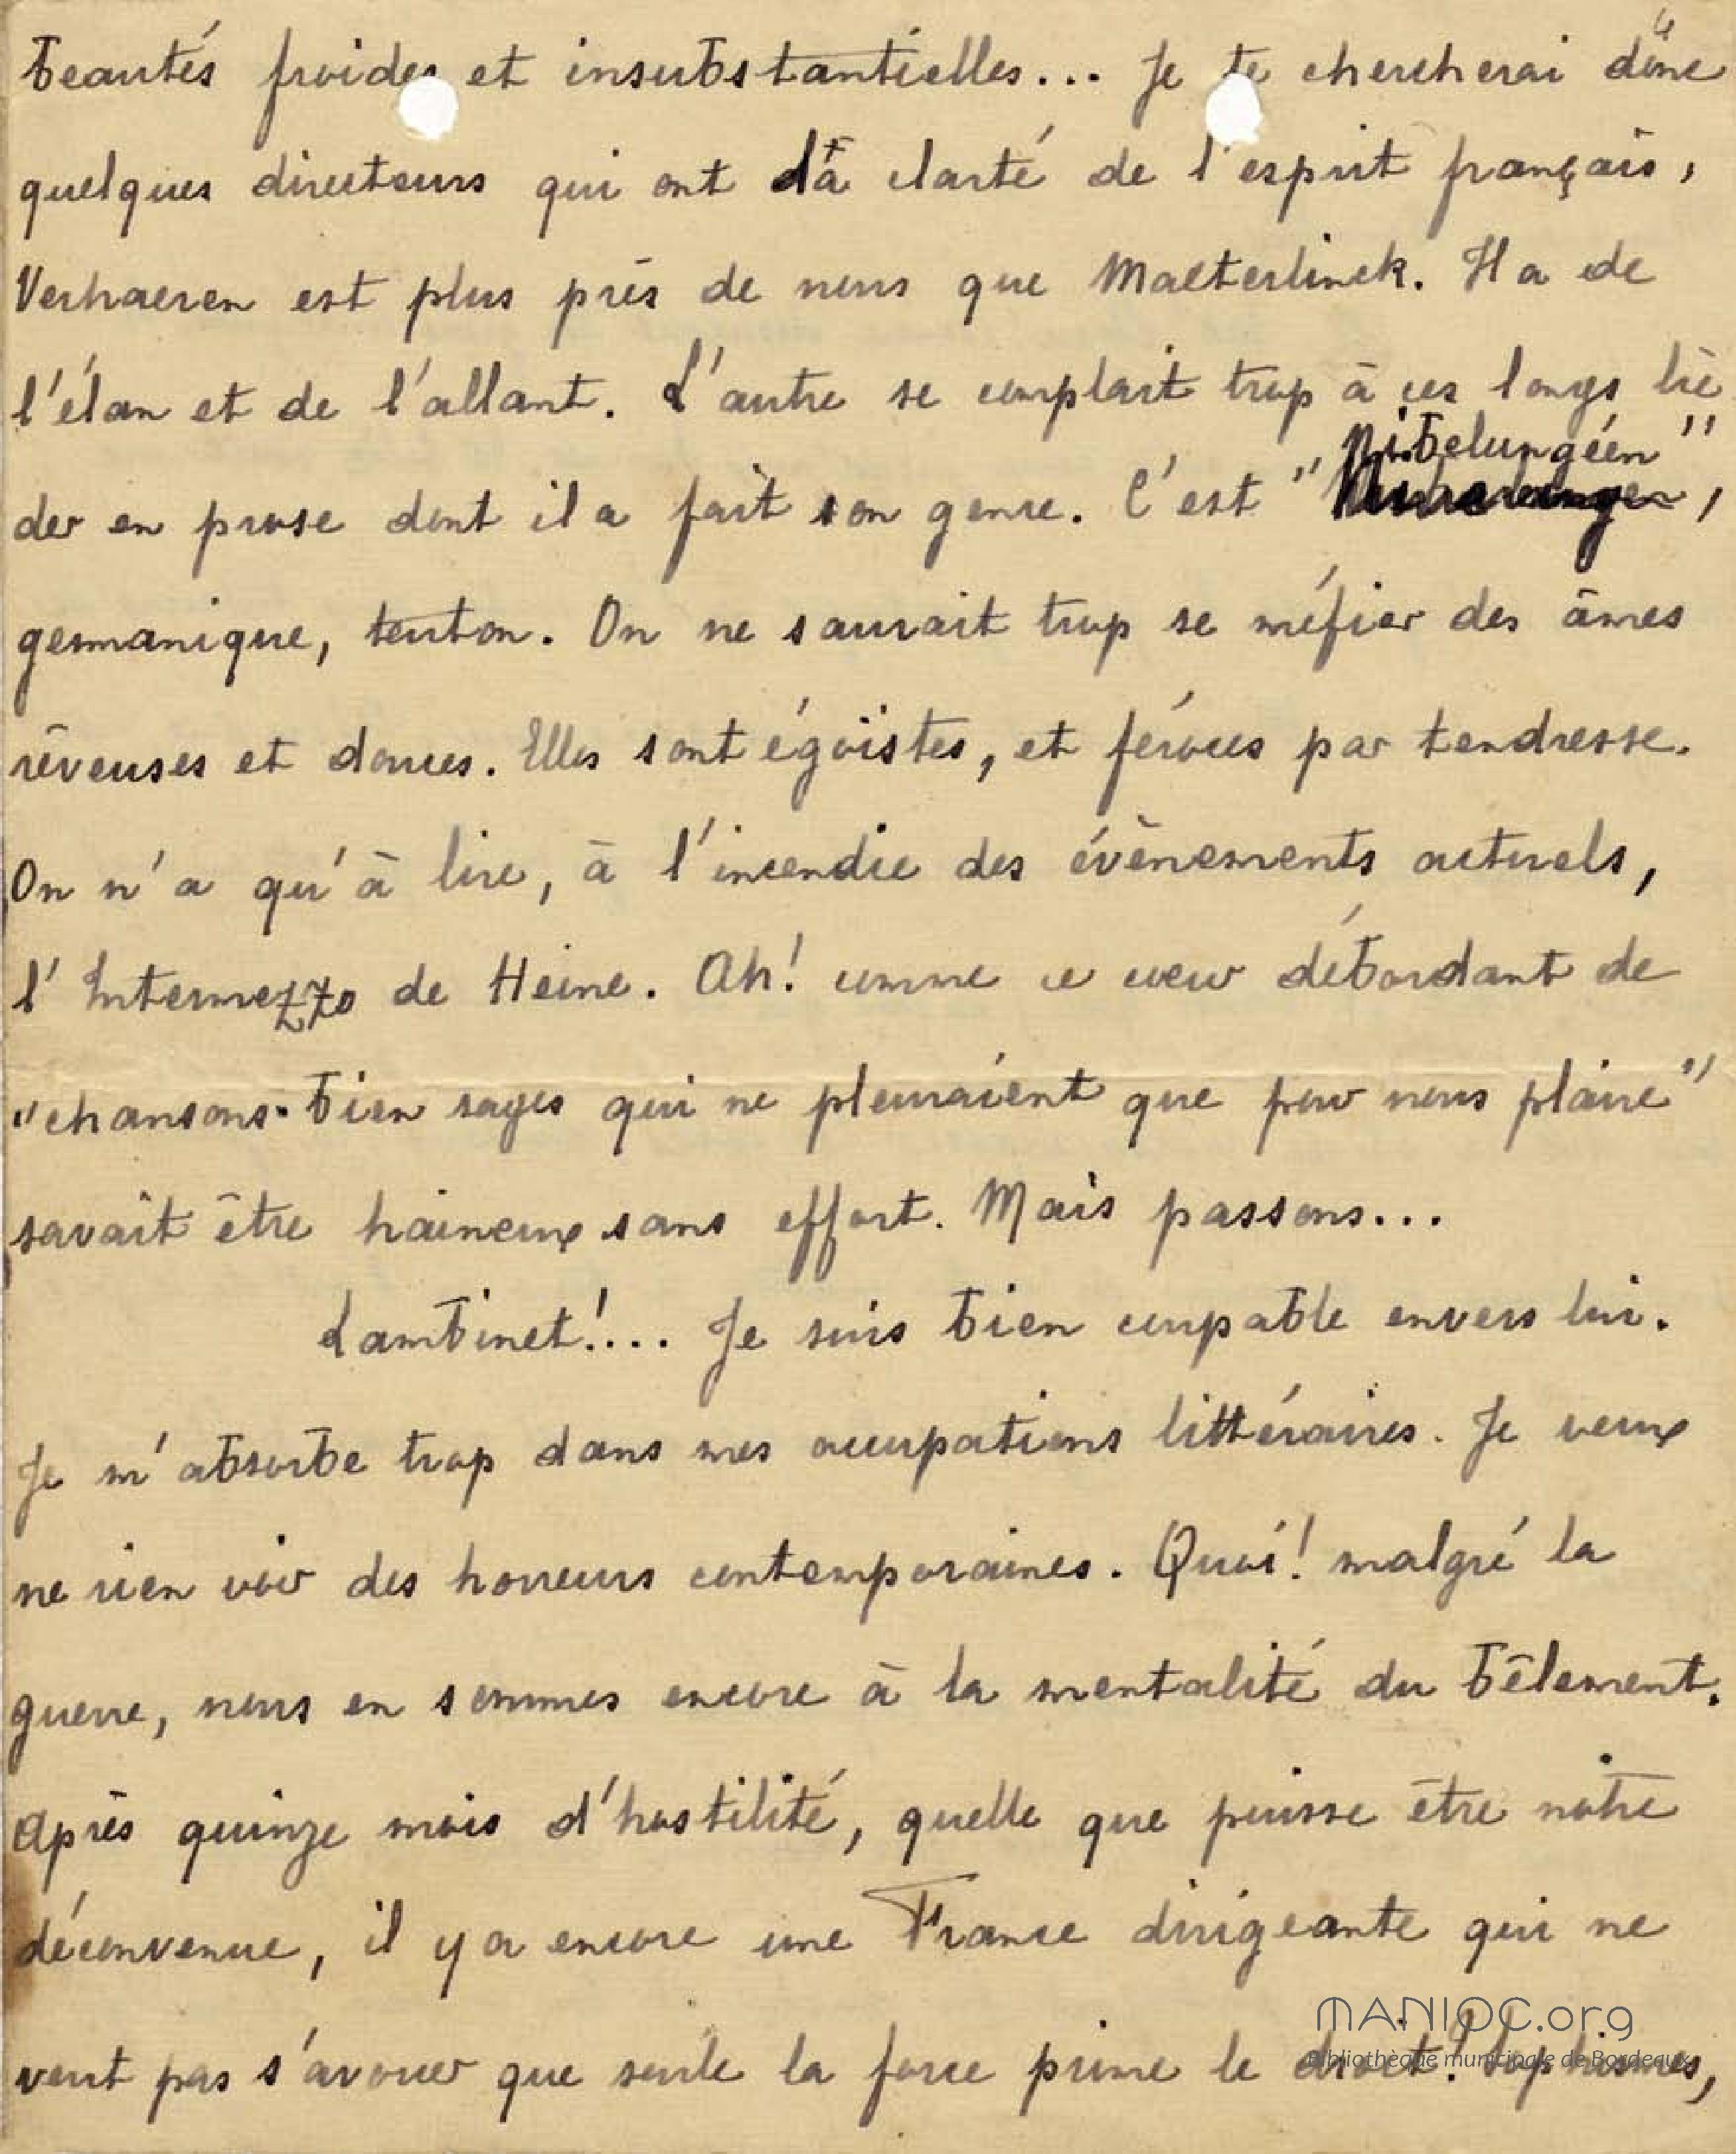 beautés froides et insubstantielles... Je te chercherai donc
quelques directeurs qui ont la clarté de l'esprit français,
Verhaeren est plus près de nous que Maeterlinck. Il a de
l'élan et de l'allant. L'autre se complait trop à ces longs lie
der en prose dont il a fait son genre. C'est "Nibelungéen",
germanique, teuton. On ne saurait trop se méfier des âmes
rêveuses et douces. Elles sont égoïstes, et féroces par tendresse.
On n'a qu'à lire, à l'incendie des évènements actuels,
l'Intermezzo de Heine. Ah! comme ce coeur débordant de
"chansons bien sages qui ne pleuraient que pour nous plaire"
savait être haineux sans effort. Mais passons...
Lambinet!... Je suis bien coupable envers lui.
Je m'absorbe trop dans mes occupations littéraires. Je veux
ne rien voir des horreurs contemporaines. Quoi! malgré la
guerre, nous en sommes encore à la mentalité du bêlement.
Après quinze mois d'hostilité, quelle que puisse être notre
déconvenue, il y a encore une France dirigeante qui ne
veut pas s'avouer que seule la force prime le droit! Sophismes,
MANIOC.org
Bibliothèque municipale de Bordeaux